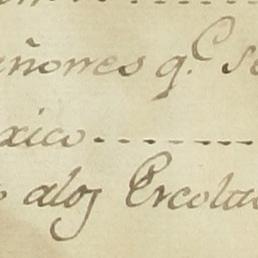 ñorres q.e se
xico - - - - - - - -
alos Ercola